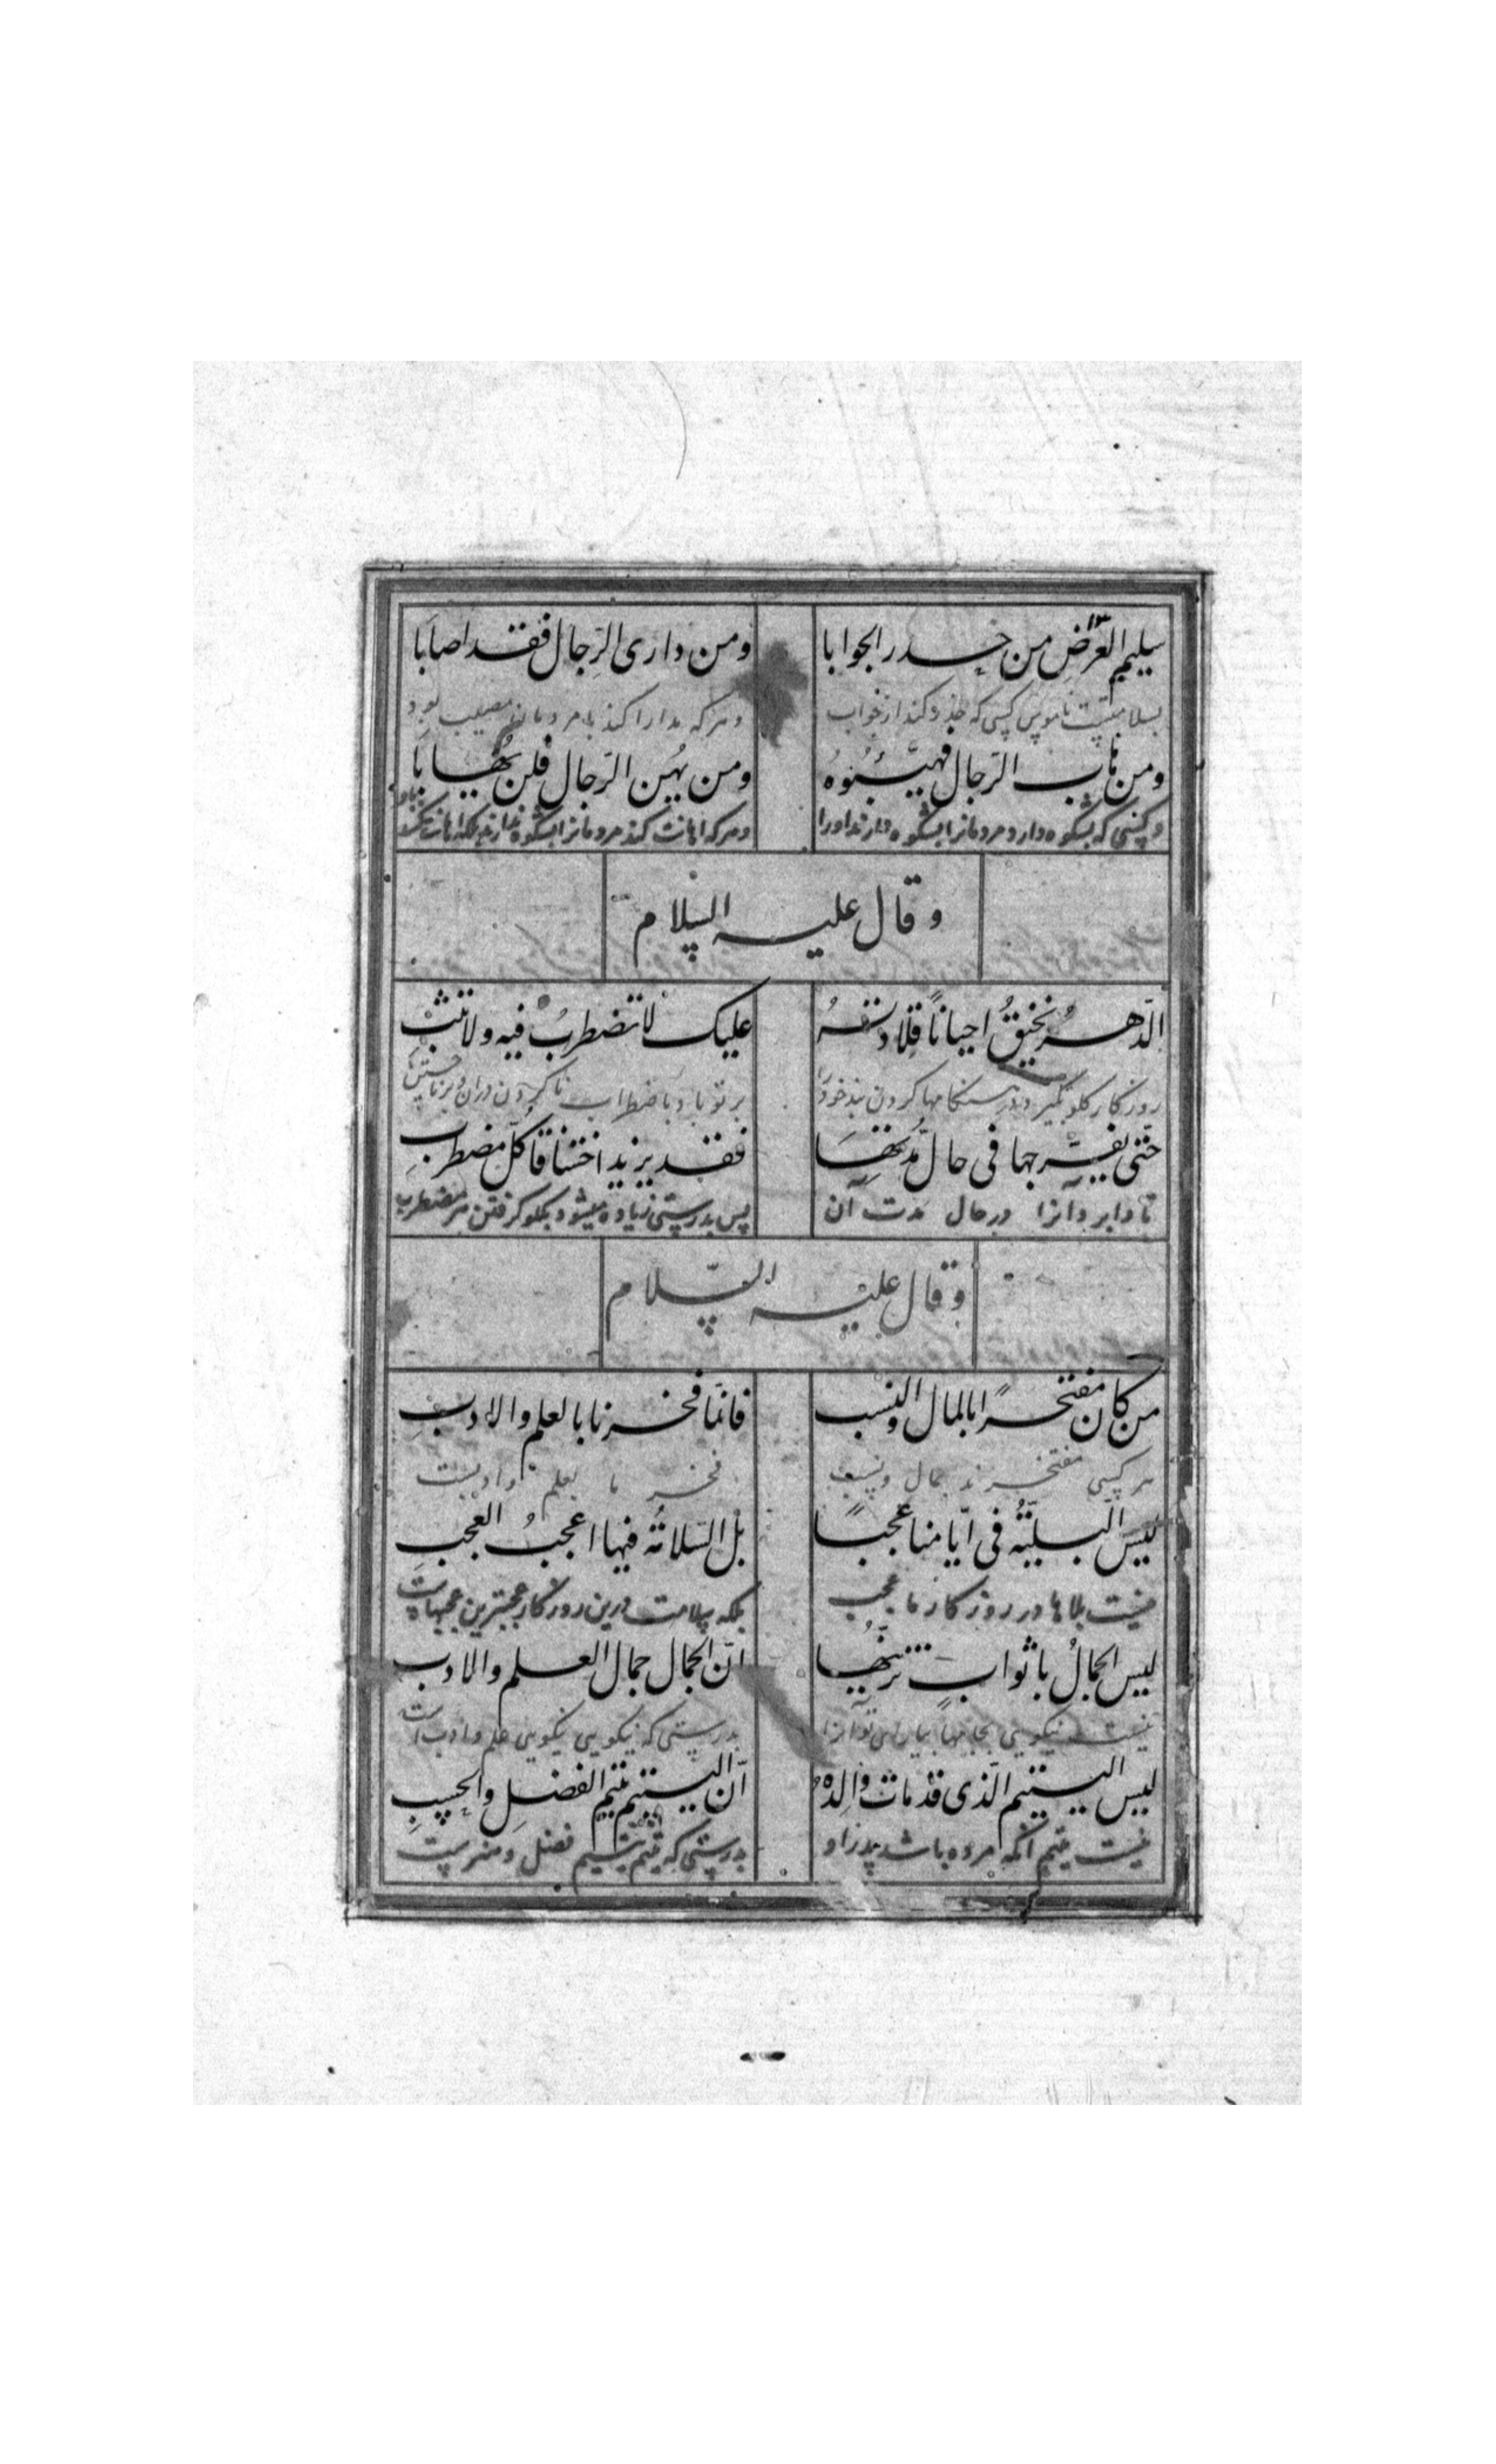 سليم العرض من حذر الجوابا
ومن دارى الرجال فقد اصابا
بسلامتست ناموس كسى كه حذر كند از جواب
وهر كه مدارا كند با مردمان مصيب بود
ومن هاب الرجال فهيّبوهُ
ومن يُهن الرجال فلن يُهابا
وكسى كه بشكوه دارد مردمانرا بشكوه دارند اورا
وهركه اهانت كند مردمانرا بشكوه ندارند بلكه اهانت كنند
وقال عليه السلام
الدّهر يخنقُ احياناً قلادتهُ
عليك لا تضطربُ فيه ولا تثب
روزكار كلو بكير د هنكامها كردن بند خود را
بر تو باد باضطراب نا كردن دران و بر ناجستن
حتى يفرّجها فى حال مُدّتها
فقد يزيد اختناقا كلّ مضطربِ
تا وا برد آنرا در حال مدت آن
پس بدرستى زياده ميشود بكلو كرفتن هر مضطرب
وقال عليه السّلام
من كان مفتخراً بالمال والنسب
فانمّا فخرنا بالعلم والادبِ
هر كسى مفتخرند بمال ونسب
فخر ما بعلم وادبست
ليس البليّةُ فى ايّامنا عجباً
بل السّلامةُ فيها اعجبُ العجبِ
نيست بلاها در روزكار ما عجب
بلكه سلامت درين روزكار عجبترين عجبهاست
ليس الجمالُ باثوابٍ تزيّنها
انّ الجمال جمال العلم والادبِ
نيست نيكويى بجامها
بدرستى كه نيكويى نيكويى علم وادب است
ليس اليتيم الّذى قد مات والدهُ
انّ اليتيم يتيم الفضلِ والحسبِ
نيست يتيم آنكه مرده باشد پدر او
بدرستى كه يتيم يتيم فضل و هنرست